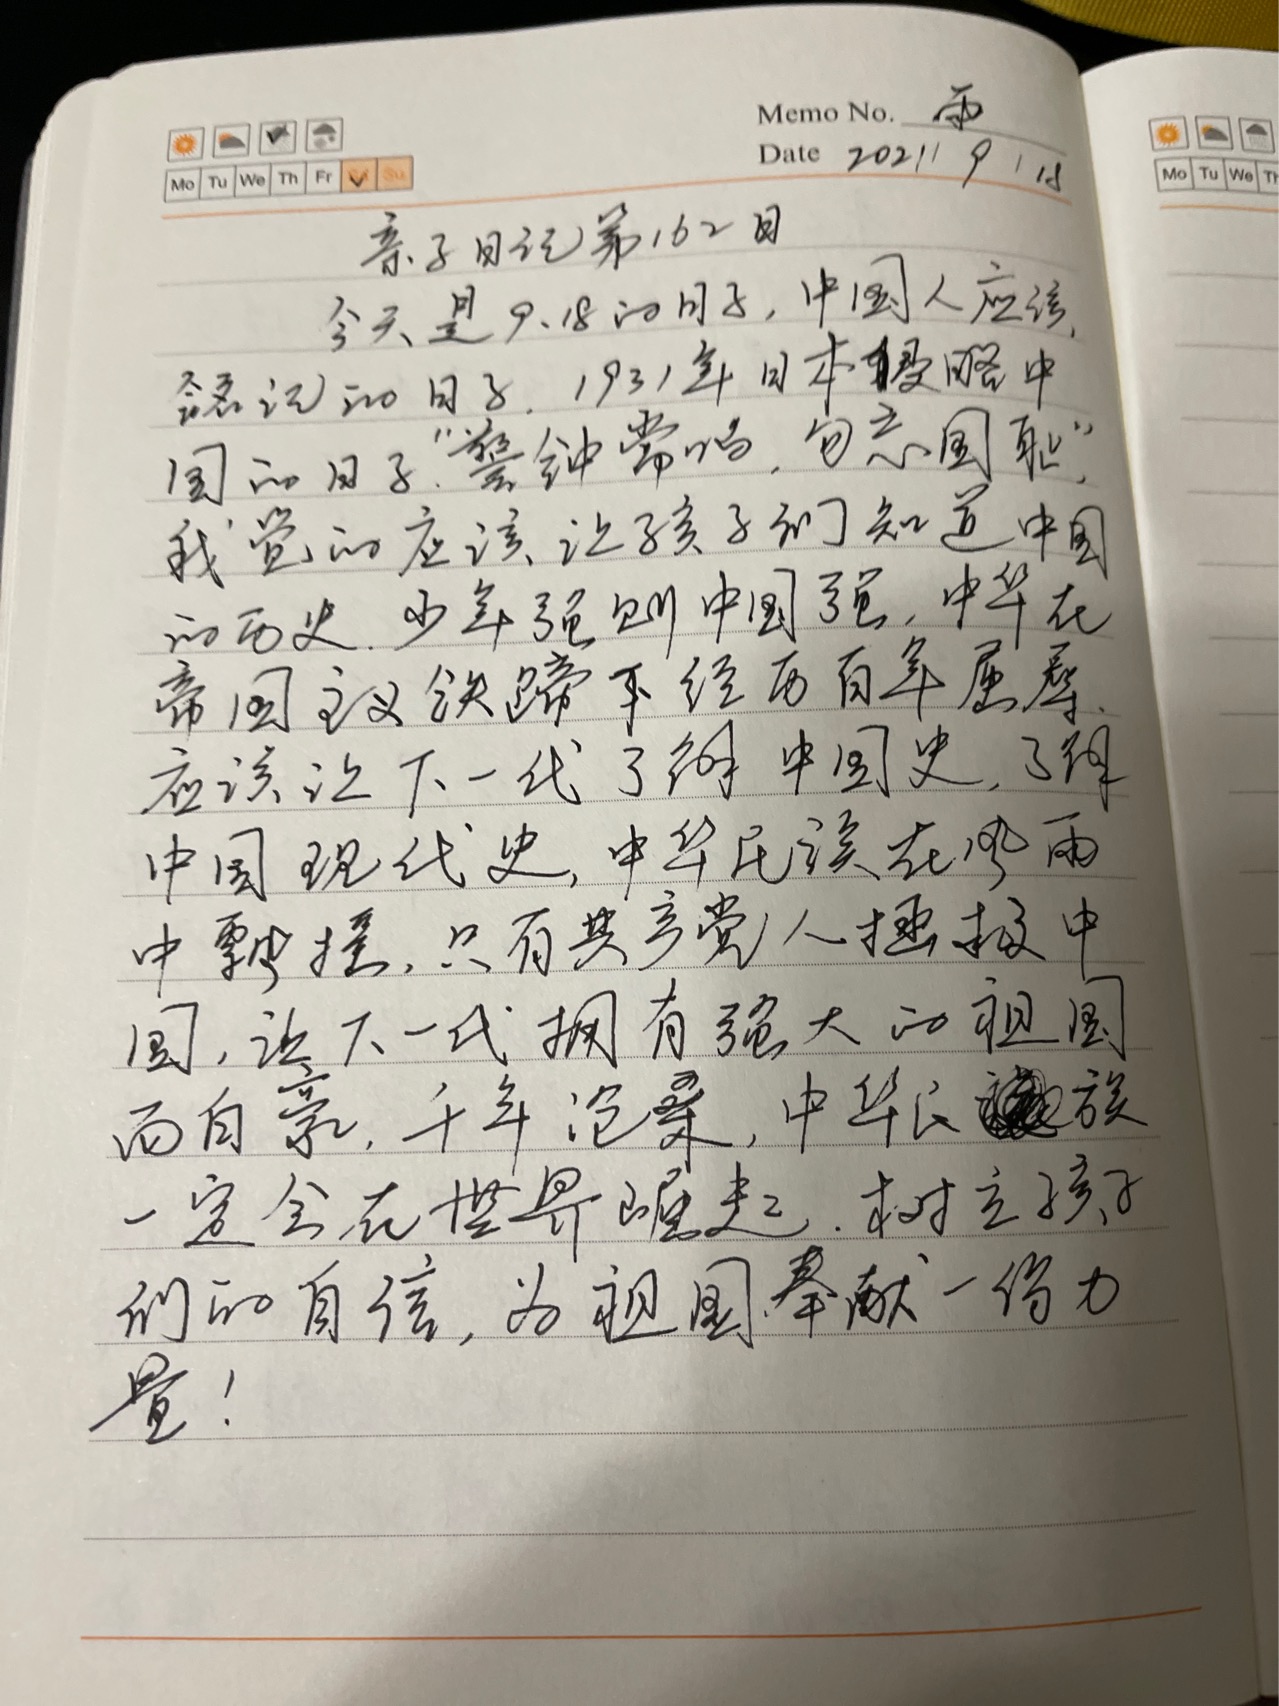 Memo No. 雨
Mo Tu We Th Fr Sa Su
Date 2021 / 9 / 18
Mo Tu We Th
亲子日记第162日
今天是9.18的日子，中国人应该
铭记的日子．1931年日本侵略中
国的日子．"警钟常鸣，勿忘国耻"，
我觉的应该让孩子们知道中国
的历史．少年强则中国强，中华在
帝国主义铁蹄下经历百年屈辱．
应该让下一代了解中国史，了解
中国现代史，中华民族在风雨
中飘摇，只有共产党人拯救中
国，让下一代拥有强大的祖国
而自豪，千年沧桑，中华民族
一定会在世界崛起．树立孩子
们的自信，为祖国奉献一份力
量！